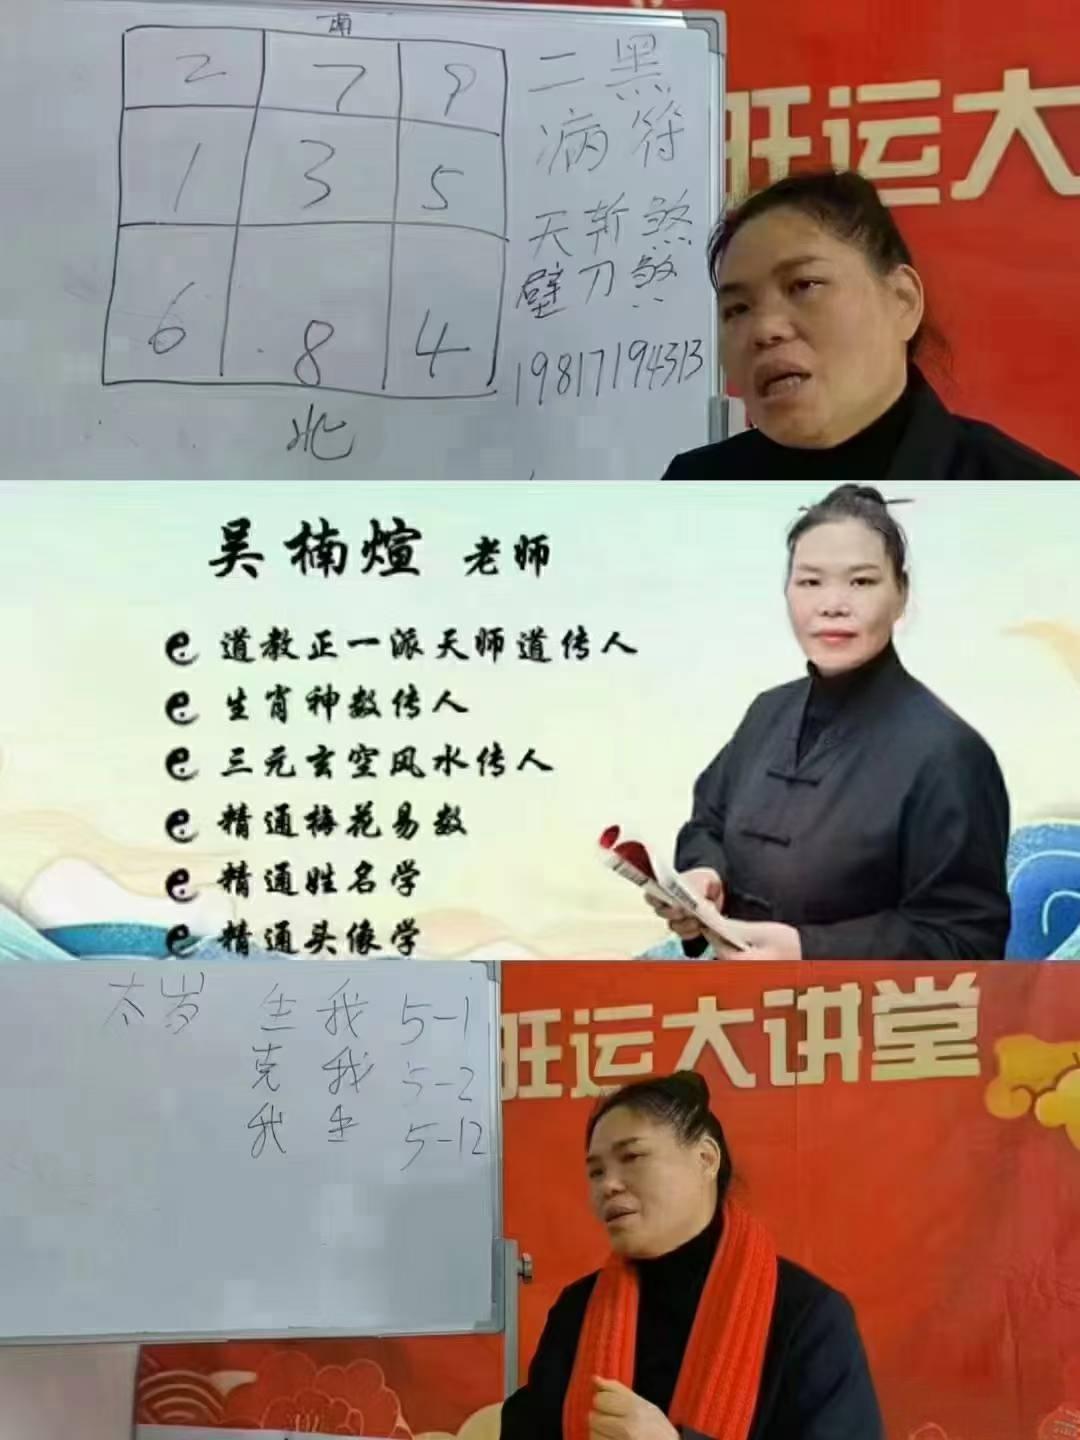 南
2 7 9
1 3 5
6 8 4
北
二黑
病符
天斩煞
壁刀煞
19817194313
旺运大
吴楠煊 老师
道教正一派天师道传人
生肖神数传人
三元玄空风水传人
精通梅花易数
精通姓名学
精通头像学
太岁 生我 5-1
克我 5-2
我生 5-12
旺运大讲堂